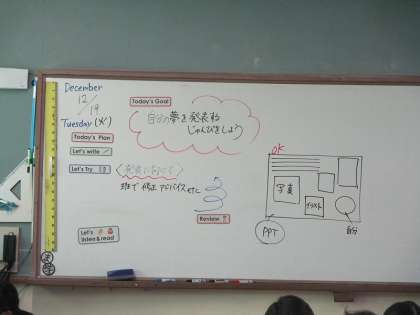 December
12/19
Tuesday (火)
Today's Goal
自分の夢を発表する
じゅんびをしよう
Today's Plan
Let's write
Let's Try
班で 修正 アドバイス etc
Review
Let's
listen & read
OK
写真
イラスト
PPT
自分